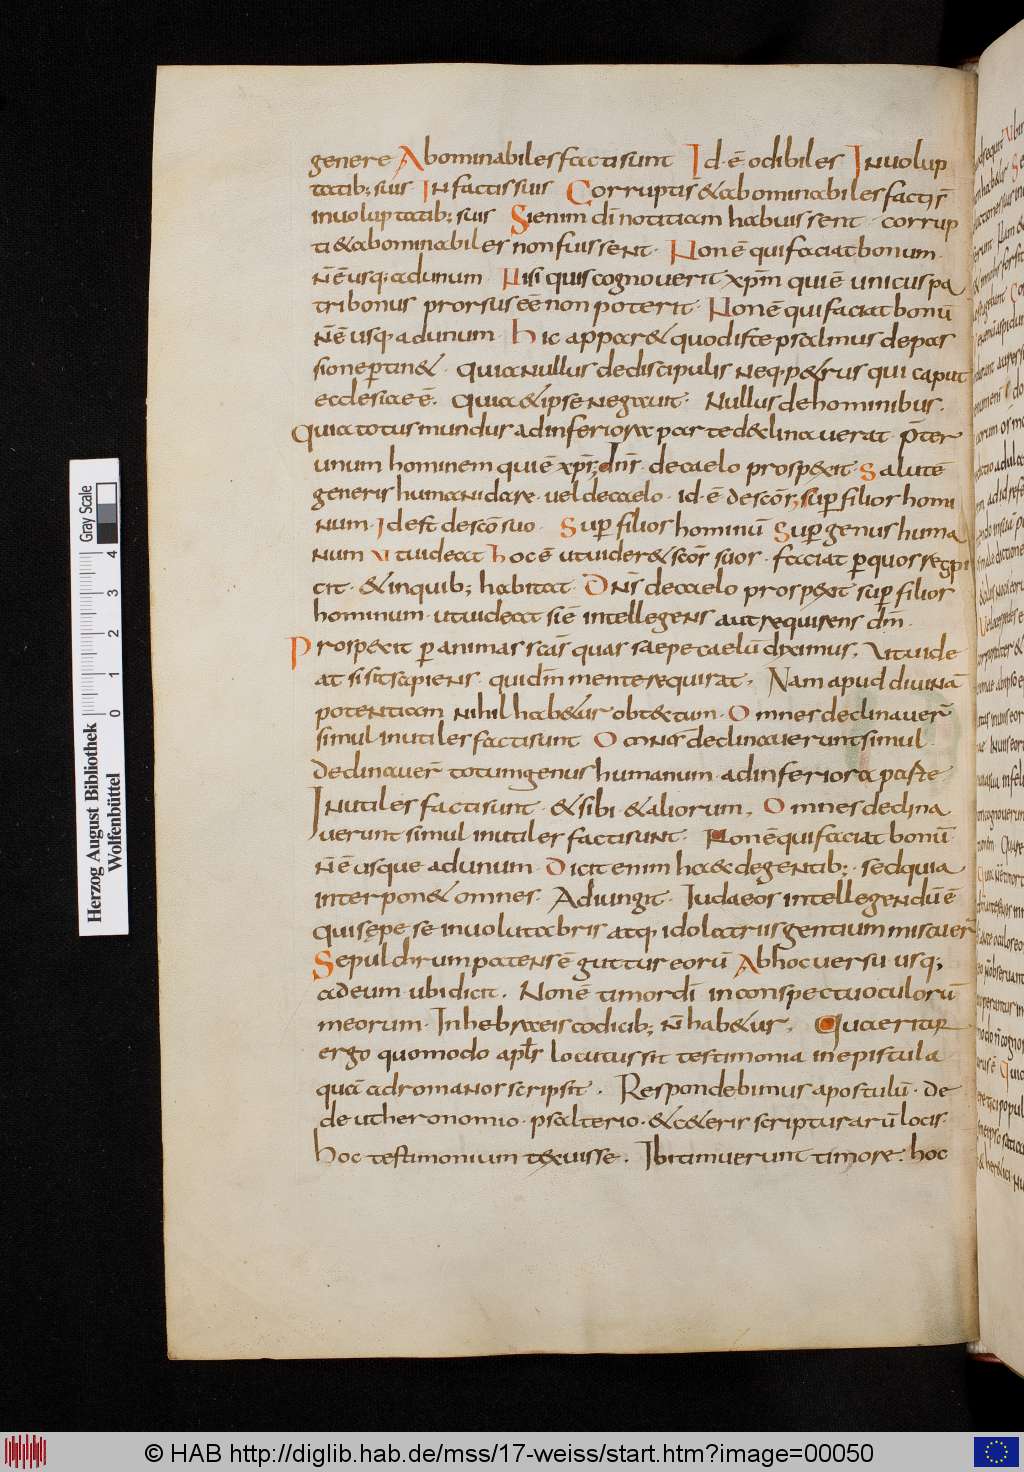 genere Abominabiles factisunt Id·ē odibiles Inuolup
tatib; suis Infactissuis Corruptis &abominabiles factiš
inuoluptatib; suis Sienim dī notitiam habuissent · corrup
ti &abominabiles nonfuissent · Non ē quifaciatbonum ·
n̄ ē usq; adunum · Nisi quis cognouerit xpm̄ qui ē unicus pa
tri bonus prorsus eē non poterit · Non ē qui faciat bonū
N̄ ē usq· adunum · Hic appar& quodiste psalmus depas
sione p̄tin& · Quianullus dediscipulis neq· p&rus qui caput
ecclesiae ē · Quia &ipse negauit · Nullus dehominibus ·
Quiatotus mundus adinferiora parte declinauerat · p̄ter
unum hominem qui ē xp̄s; dn̄s · decaelo prosp&it · Salutē
generis humani dare · uel decaelo · id · ē descōs; sup̄ filios homi
num · Idest descōsuo · Sup̄ filios hominū Sup̄genus huma
num Vtuideat Hoc ē utuider& scōs suos · faciat p̄quos respi
cit · &inquib; habitat · Dn̄s decaelo prosp&it sup̄ filios
hominum · utuideat si ē intellegens aut requirens dm̄ ·
Prosp&it p̄ animas scās quas saepe caelū diximus, Vtuide
at sisitsapiens · quidm̄ mente requirat · Nam apud diuinā
potentiam nihil hab&ur obt&tum · Omnes declinauer̄
simul inutiles factisunt Omnes declinaueruntsimul
Declinauer̄ totumgenus humanum · adinferiora parte
Inutiles factisunt · &sibi · &aliorum, Omnes declina
uerunt simul inutiles factisunt · Non ē quifaciat bonū
n̄ ē usque adunum · Dicit enim ha& degentib; · sedquia
interpon& omnes · Adiungit · Iudaeos intellegendū ē
quisępe se inuolutabris atq· idolatriis gentium miscuer̄
Sepulchrum patens ē guttur eorū Abhocuersu usq;
adeum · ubidicit · Non ē timor dī inconspectuoculorū
meorum · Inhebraeis codicib; n̄ hab&ur, Quaeritur
ergo quomodo apls̄ locutus sit testimonia inepistula
quā adromanos scripsit · Respondebimus apostulū · de
deutheronomio · psalterio · &c&eris scripturarū locis ·
Hoc testimonium t&uisse · Ibitimuerunt timore · hoc
Herzog August Bibliothek
Wolfenbüttel
Gray Scale
0 1 2 3 4
© HAB http://diglib.hab.de/mss/17-weiss/start.htm?image=00050